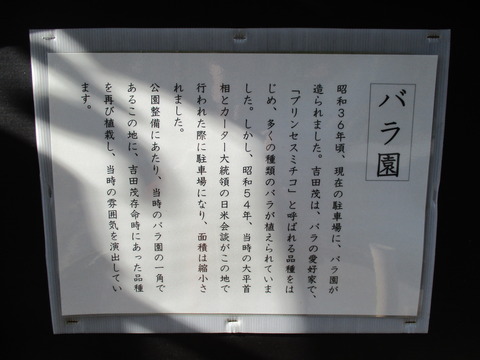 バラ園
昭和３６年頃、現在の駐車場に、バラ園が
造られました。吉田茂は、バラの愛好家で、
「プリンセスミチコ」と呼ばれる品種をは
じめ、多くの種類のバラが植えられていま
した。しかし、昭和５４年、当時の大平首
相とカーター大統領の日米会談がこの地で
行われた際に駐車場になり、面積は縮小さ
れました。
公園整備にあたり、当時のバラ園の一角で
あるこの地に、吉田茂存命時にあった品種
を再び植栽し、当時の雰囲気を演出してい
ます。